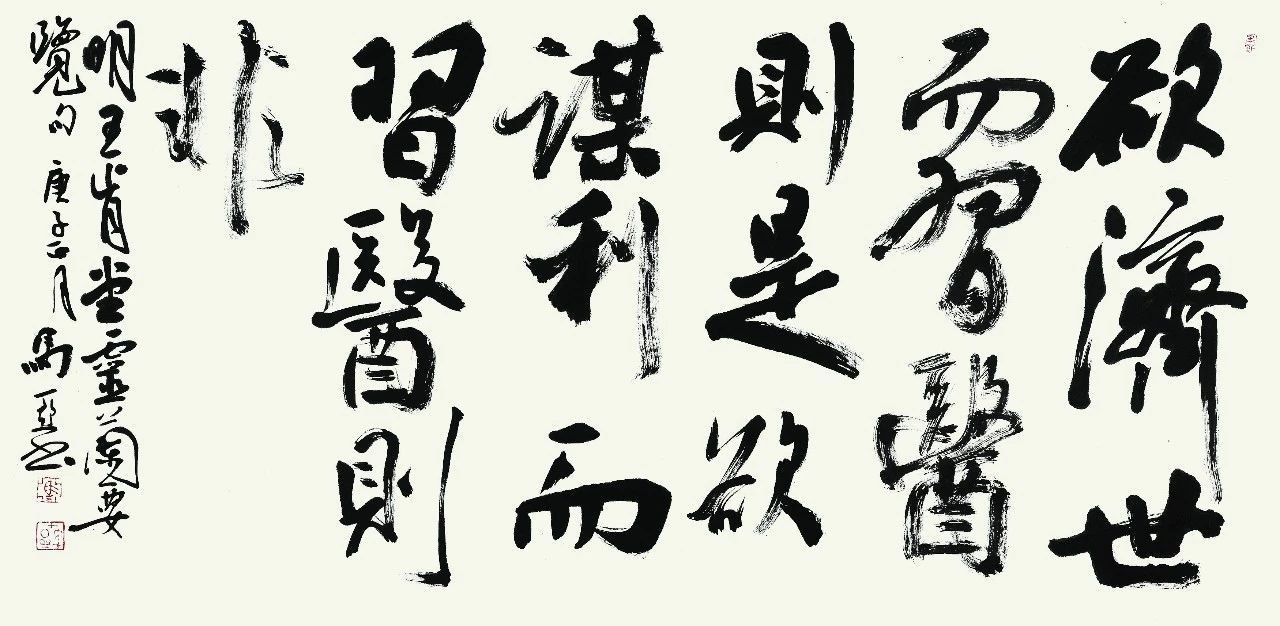 欲濟世
而習醫
則是欲
謀利而
習醫則
非
明王肯堂靈蘭要
覽句 庚子月 馬亞书